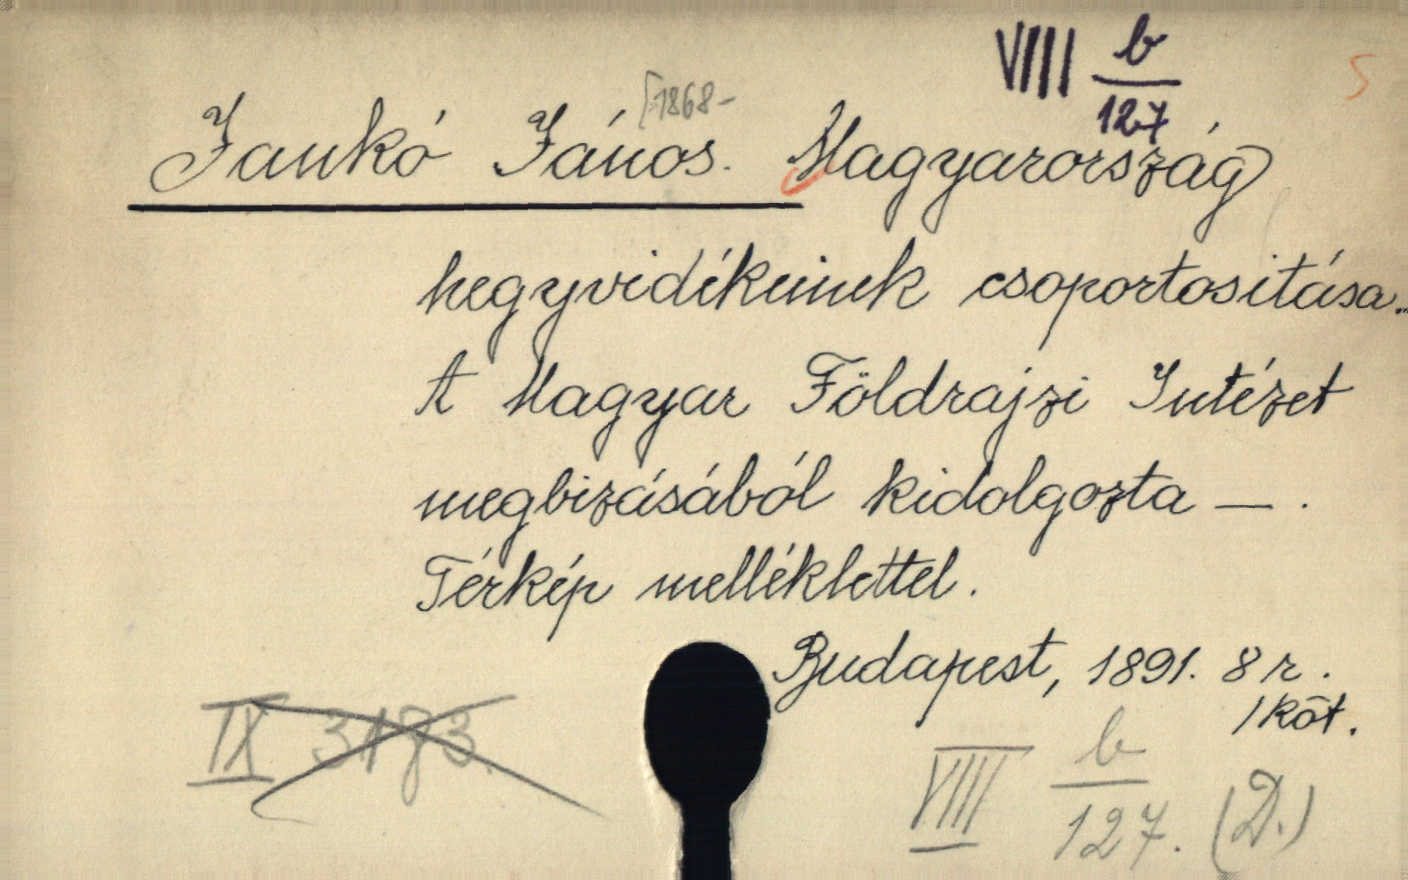 VIII b/127
[1868-
Jankó János. Magyarország
hegyvidékeinek csoportositása..
A Magyar Földrajzi Intézet
megbizásából kidolgozta — .
Térkép melléklettel.
Budapest, 1891. 8 r.
1 köt.
IX 3173.
VIII b/127. (D.)